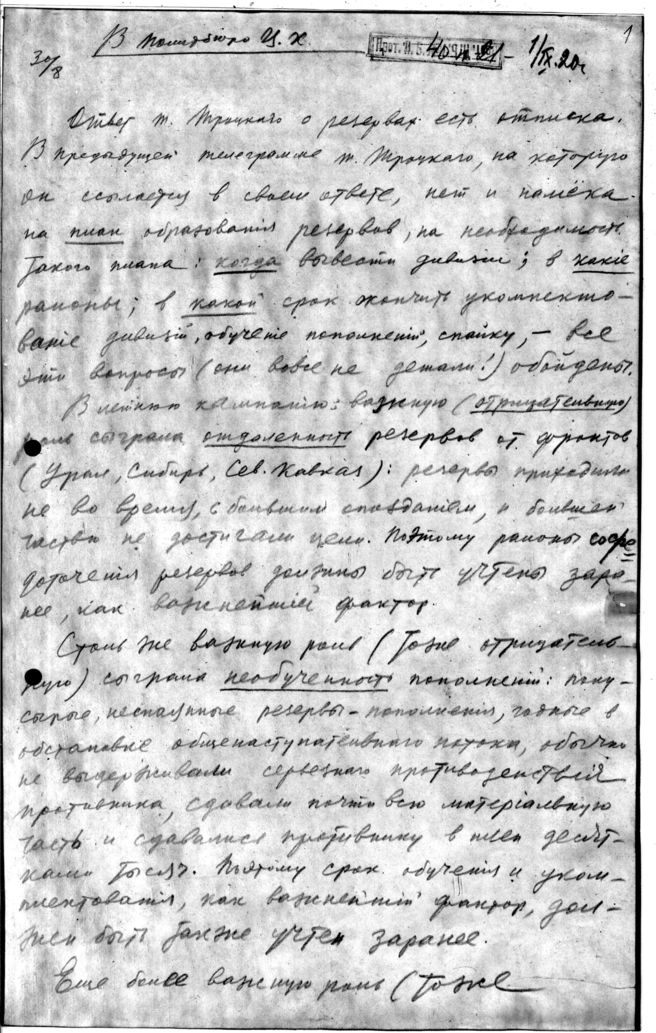 1
В Политбюро Ц.К.
30/8
1/IX.20г.
Ответ т. Троцкаго о резервах есть отписка.
В предыдущей телеграмме т. Троцкаго, на которую
он ссылается в своем ответе, нет и намёка
на план образованія резервов, на необходимость
такого плана: когда вывести дивизии; в какіе
районы; в какой срок кончить укомплекто-
ваніе дивизій, обученіе пополненій, спайку, – все
эти вопросы (они вовсе не детали!) обойдены.
В летнюю кампанію: важную (отрицательную)
роль сыграла отдаленность резервов от фронтов
(Урал, Сибирь, Сев. Кавказ): резервы приходили
не во время, с большим опозданіем, и большей
частью не достигали цели. Поэтому районы сосре-
доточенія резервов должны быть учтены зара-
нее, как важнейшій фактор.
Столь же важную роль (тоже отрицатель-
ную) сыграла необученность пополненій: полу-
сырые, неспаянные резервы – пополненія, годные в
обстановке общенаступательнаго потока, обычно
не выдерживали серьезнаго противодействія
противника, сдавали почти всю матеріальную
часть и сдавались противнику в плен десят-
ками тысяч. Поэтому срок обученія и уком-
плектованія, как важнейшій фактор, дол-
жен быть также учтен заранее.
Еще более важную роль (тоже